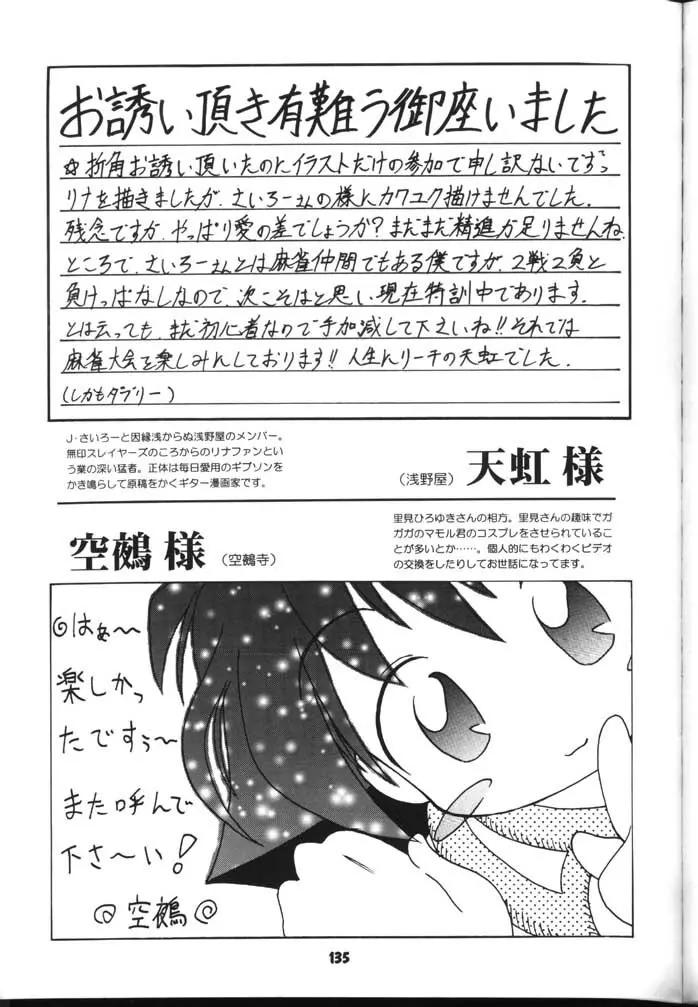 お誘い頂き有難う御座いました
☆折角お誘い頂いたのにイラストだけの参加で申し訳ないですっ
リナを描きましたが、さいろーさんの様にカワユク描けませんでした。
残念ですが、やっぱり愛の差でしょうか?まだまだ精進が足りませんね。
ところで、さいろーさんとは麻雀仲間でもある僕ですが、2戦2負と
負けっぱなしなので、次こそはと思い現在特訓中であります。
とは云っても、まだ初心者なので手加減して下さいね!!それでは
麻雀大会を楽しみにしております!!人生にリーチの天虹でした。
(しかもダブリー)
J・さいろーと因縁浅からぬ浅野屋のメンバー。
無印スレイヤーズのころからのリナファンとい
う業の深い猛者。正体は毎日愛用のギブソンを
かき鳴らして原稿をかくギター漫画家です。
(浅野屋)天虹 様
空鵺 様(空鵺寺)
里見ひろゆきさんの相方。里見さんの趣味でガ
ガガのマモル君のコスプレをさせられているこ
とが多いとか……。個人的にもわくわくビデオ
の交換をしたりしてお世話になってます。
はぁ〜
楽しかっ
たですぅ〜
また呼んで
下さ〜い!
空鵺
135